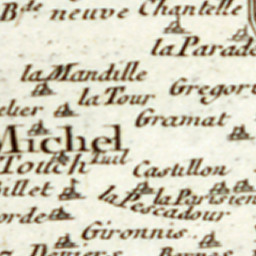 B.de neuve Chantelle
la Parade
la Mandille
la Tour Gregori
elier Gramat
Michel
Touch Tuil Castillon
illet la Parisien
la Pescadour
orde Gironnis